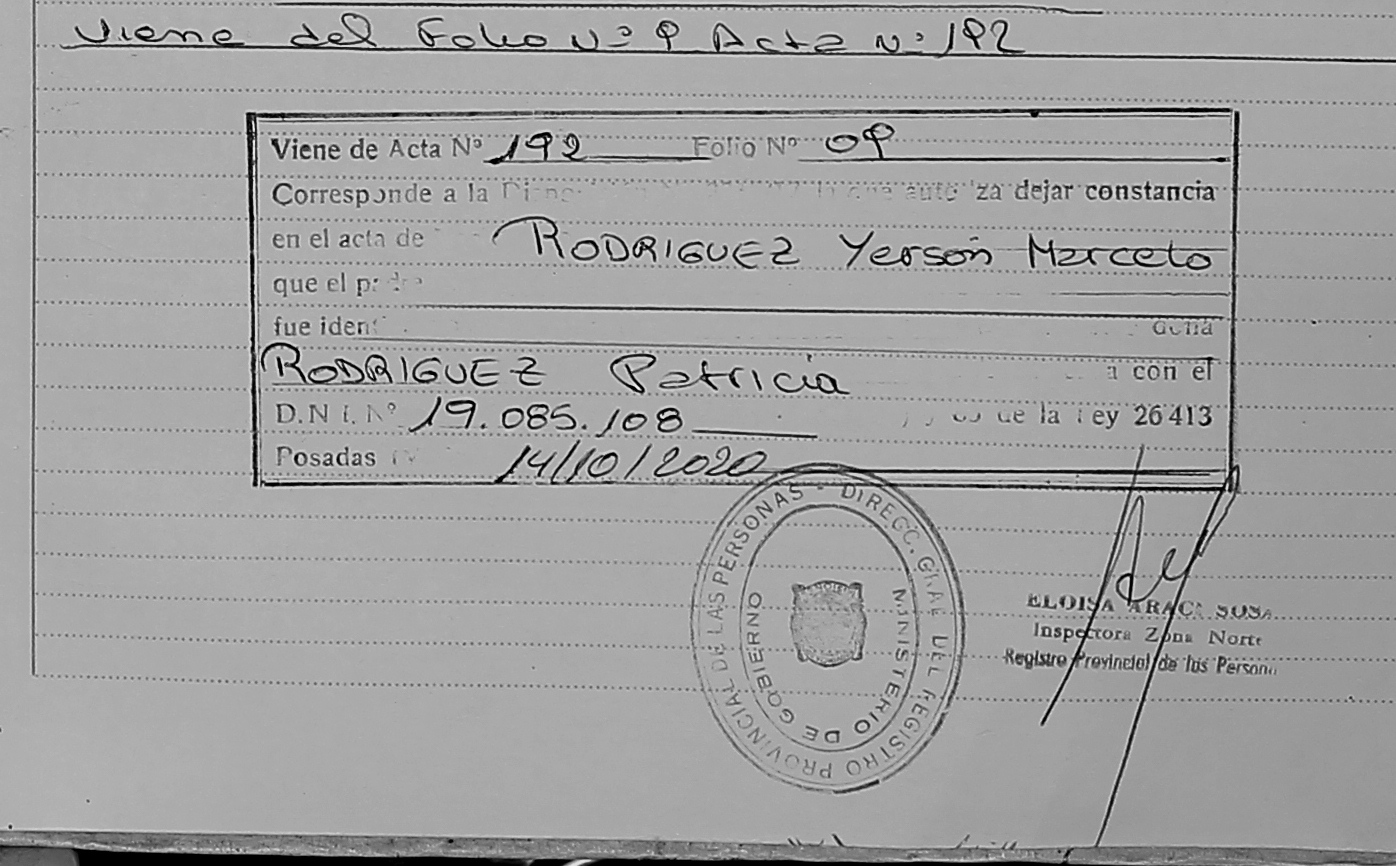 Viene del Folio Nº 9 Acta Nº 192
Viene de Acta Nº 192 Folio Nº 09
Corresponde a la za dejar constancia
en el acta de RODRIGUEZ Yerson Marcelo
que el
fue
RODRIGUEZ Patricia a con el
D.N.I. Nº 19.085.108 de la Ley 26413
Posadas 14/10/2020
DIRECC. GRAL DEL REGISTRO PROVINCIAL DE LAS PERSONAS -
MINISTERIO DE GOBIERNO
ELOISA SUSA
Inspectora Zona Norte
Registro Provincial de las Persona